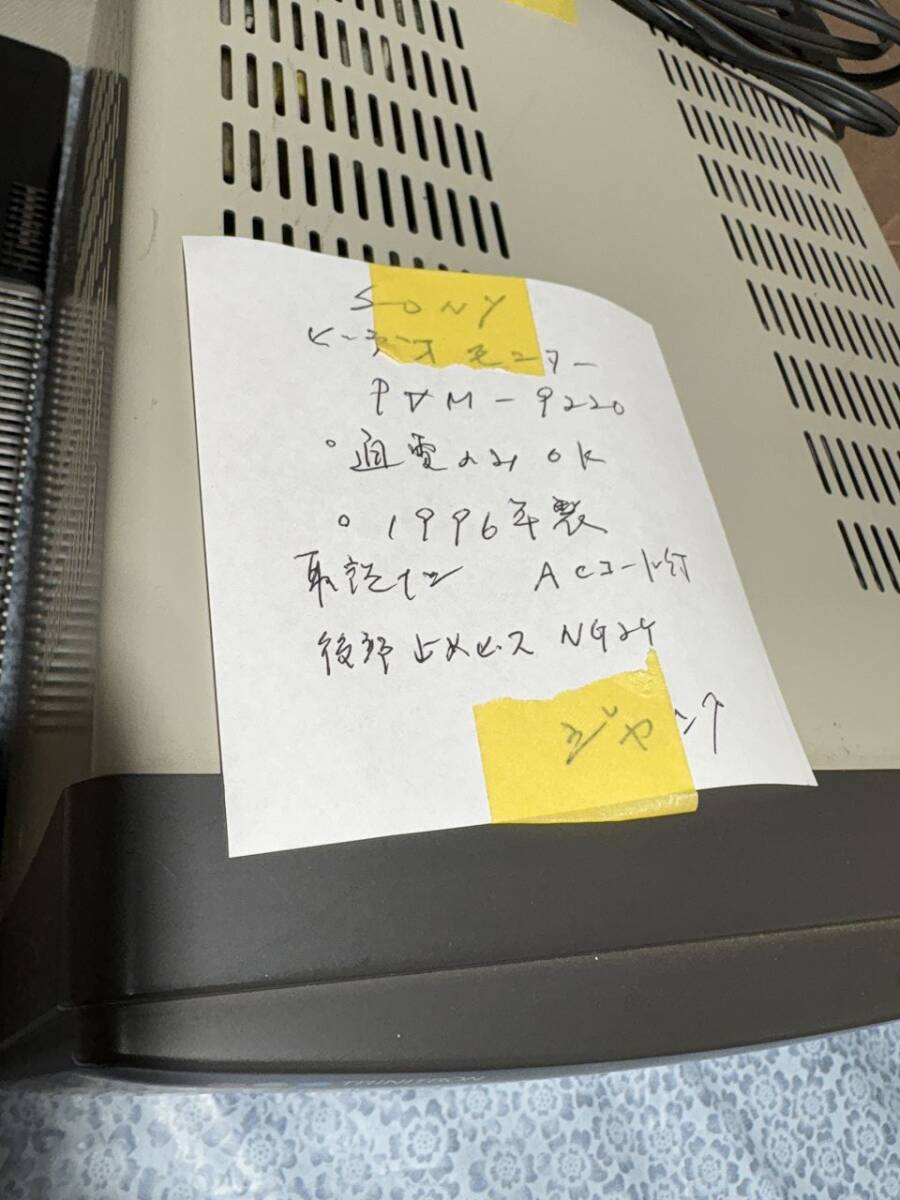 SONY
ビデオモニター
PVM-9220
○通電のみOK
○1996年製
取説ナシ ACコード付
後部止めビスNG2ケ
ジャンク
TRINITRON